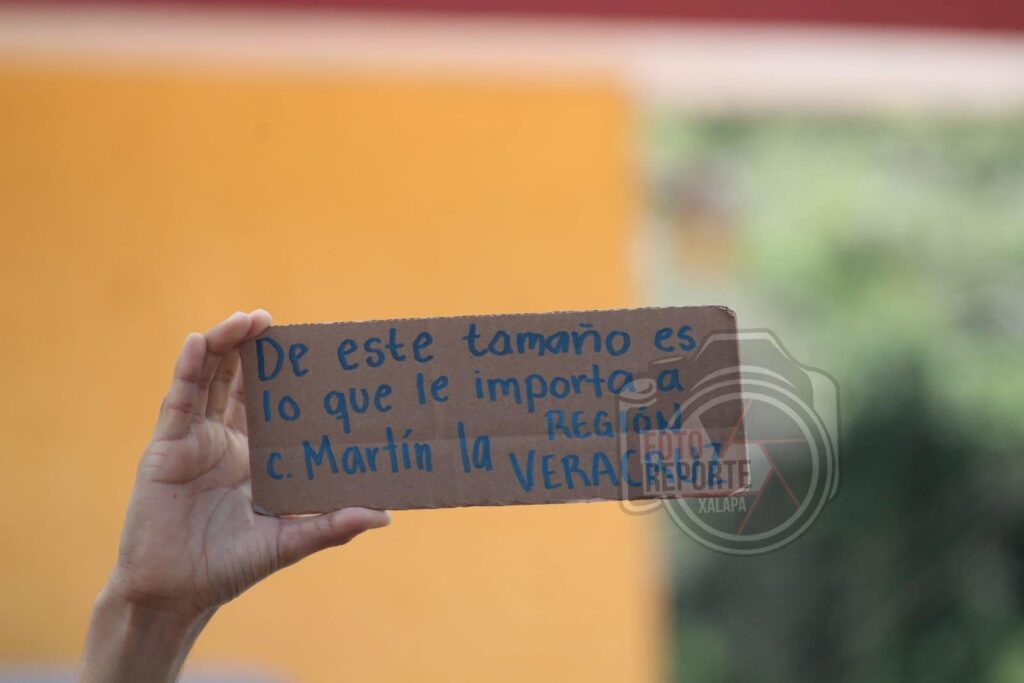 De este tamaño es
lo que le importa a
c. Martín la REGIÓN
VERACRUZ
FOTO
REPORTE
XALAPA